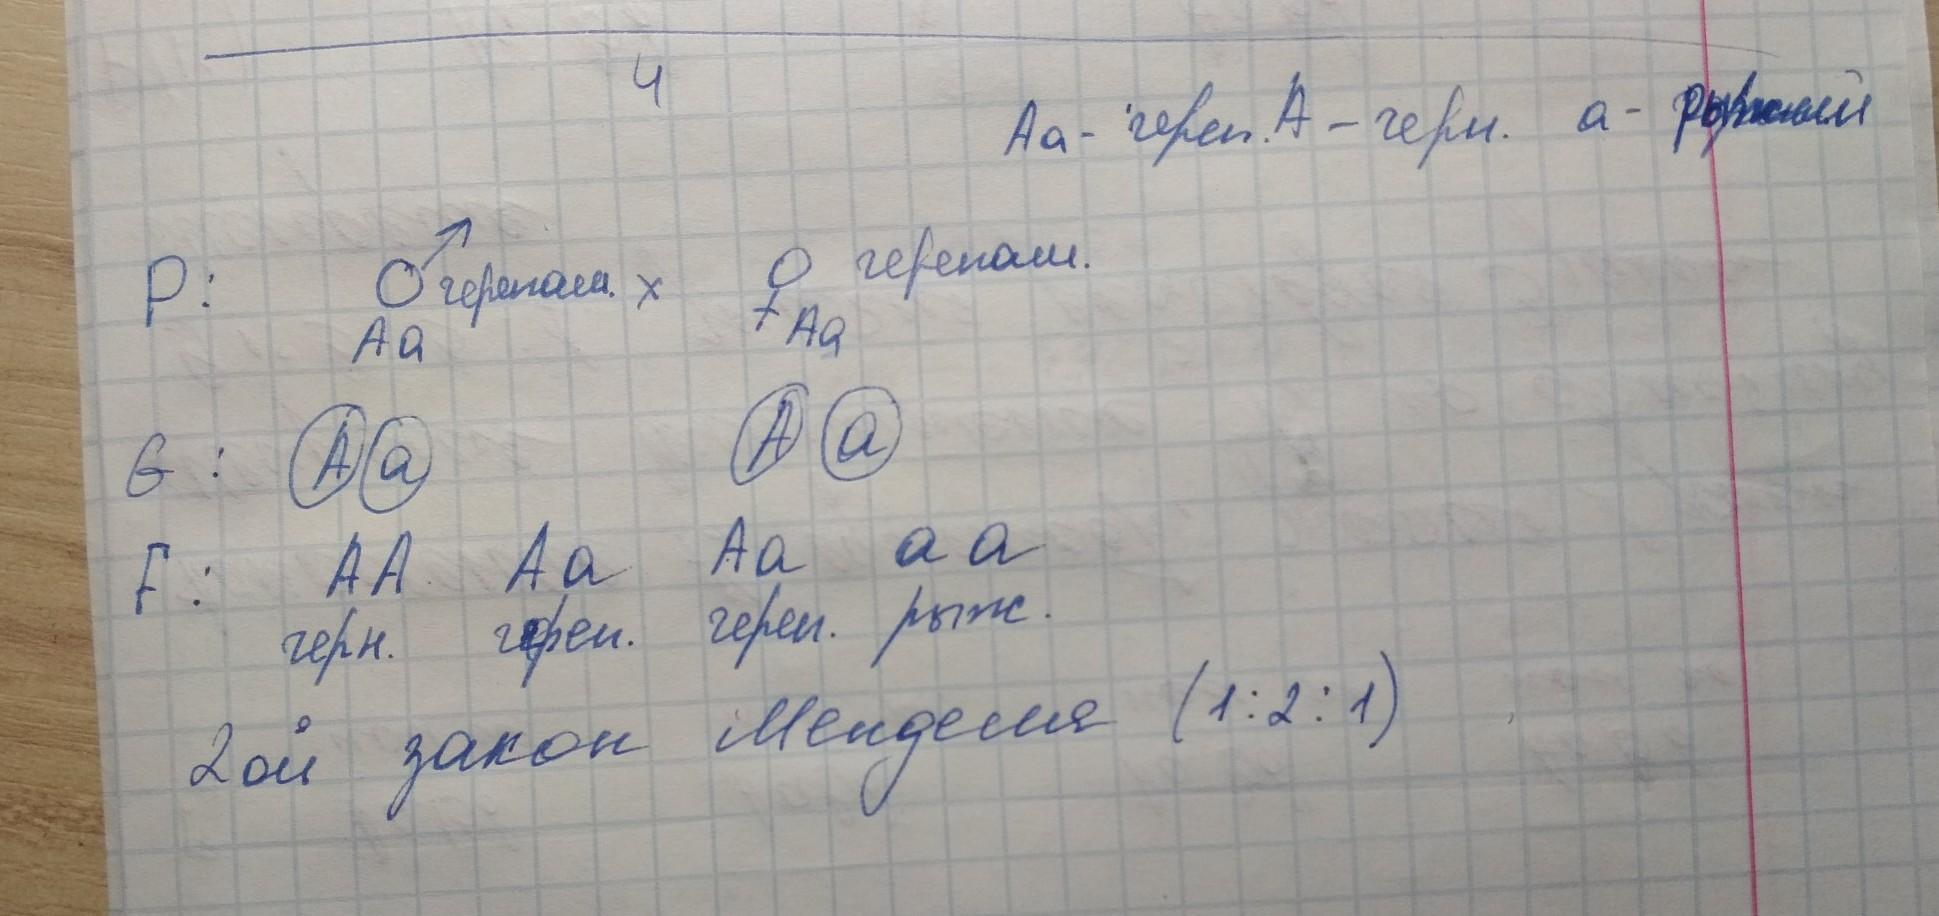 4
Aa - череп. A - черн. a - рыжий
P: ♂ черепаш. x ♀ черепаш.
Aa Aa
G: A a A a
F: AA Aa Aa aa
черн. череп. череп. рыж.
2ой закон Менделя (1:2:1)